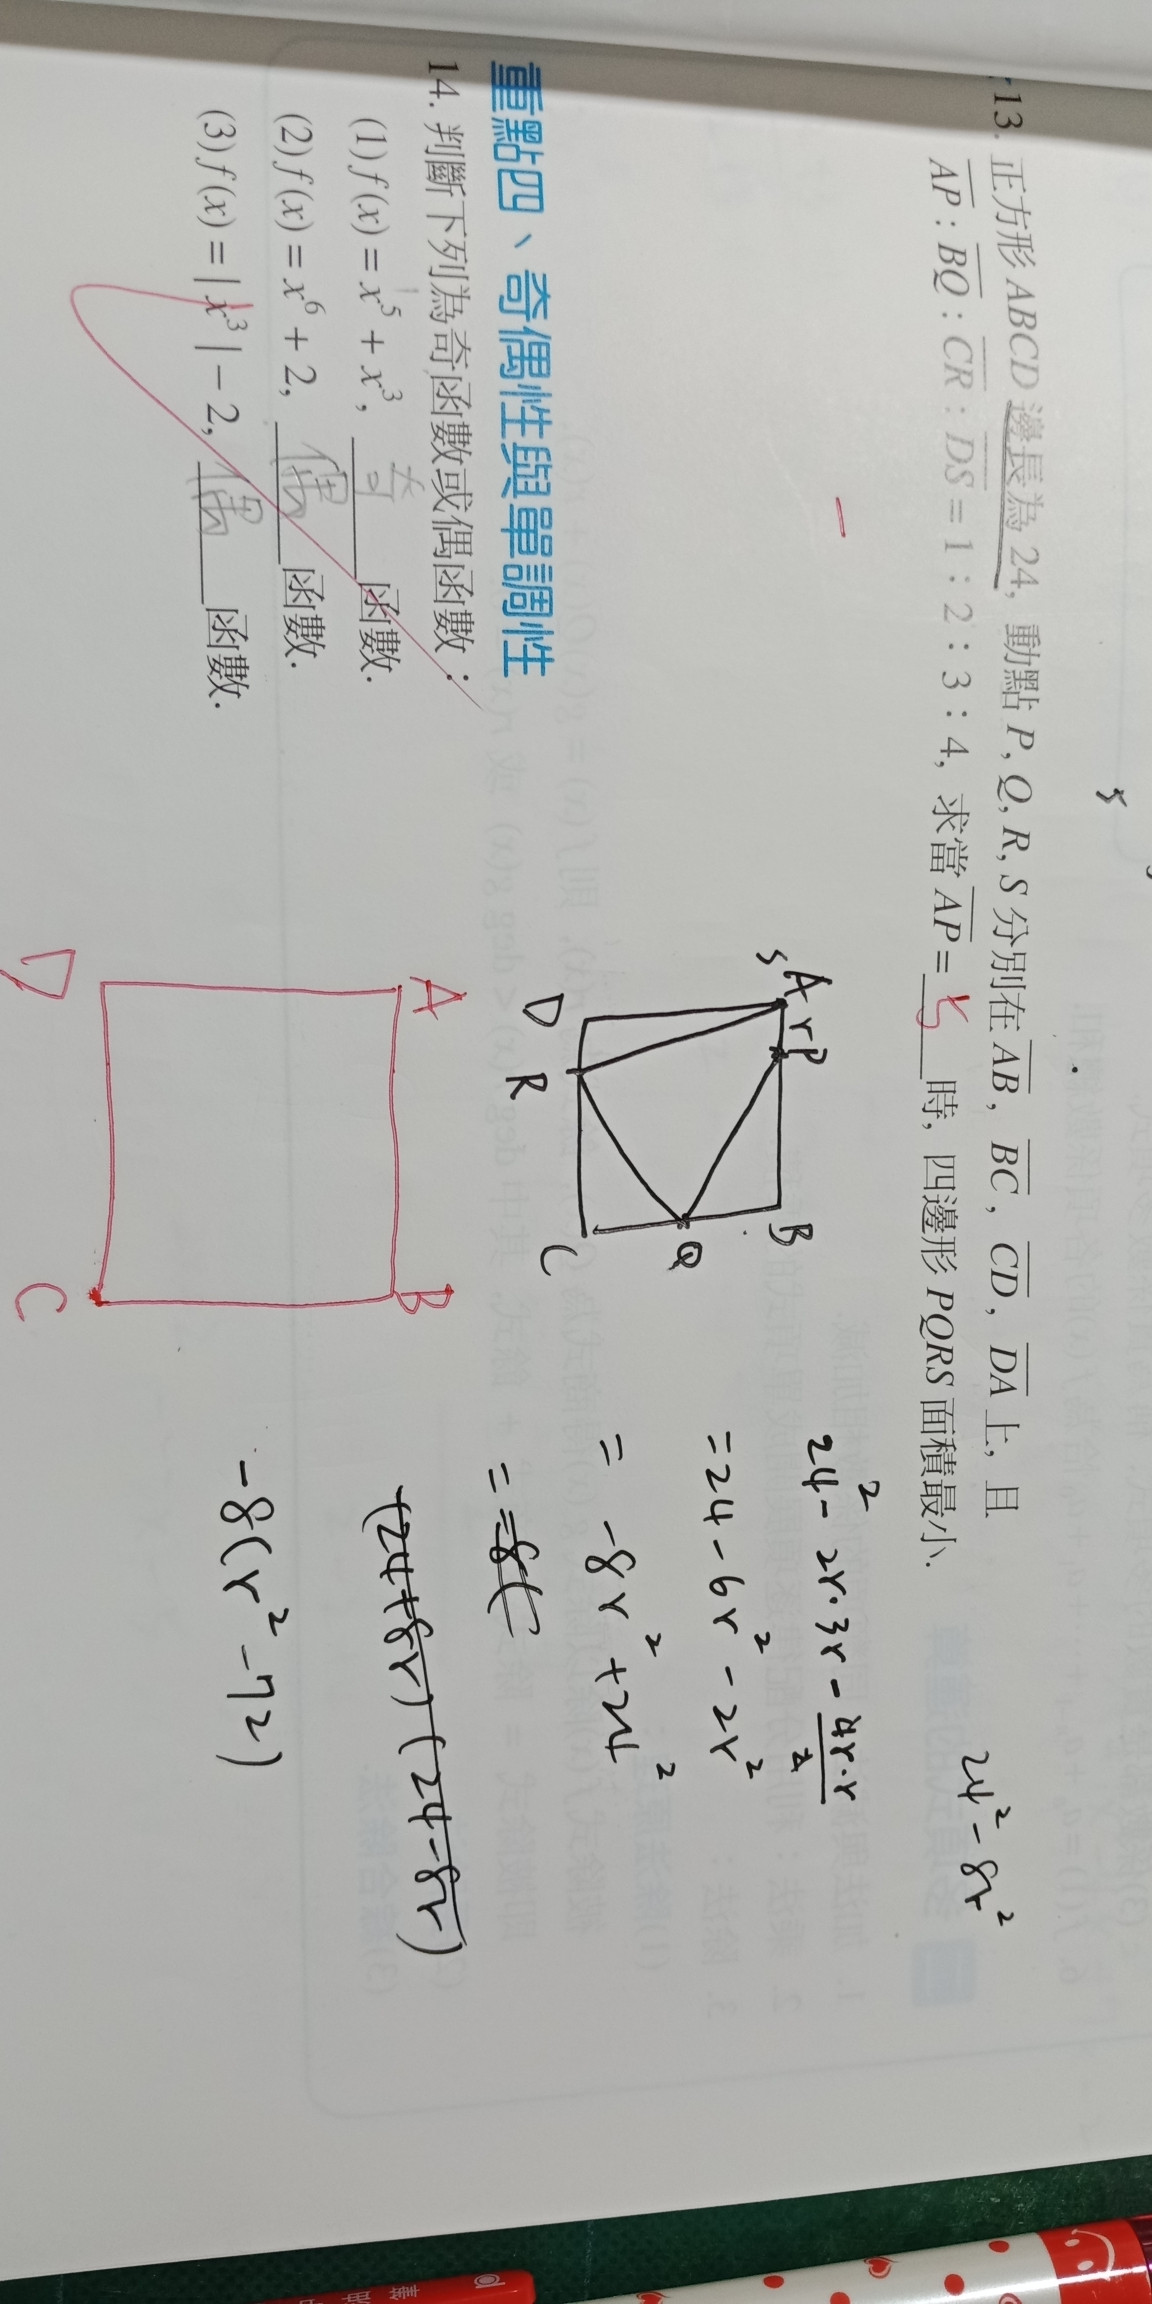 13. 正方形 ABCD 邊長為 24, 動點 P, Q, R, S 分別在 AB, BC, CD, DA 上, 且
AP : BQ : CR : DS = 1 : 2 : 3 : 4, 求當 AP = 時, 四邊形 PQRS 面積最小.
24² - 8r²
S A r P B
D R C Q
24² - 2r·3r - r·4r/2
= 24 - 6r² - 2r²
= -8r² + 24²
= -8(
(24+8r)(24-8r)
-8(r² - 72)
重點四、奇偶性與單調性
14. 判斷下列為奇函數或偶函數：
(1) f(x) = x⁵ + x³, 奇 函數.
(2) f(x) = x⁶ + 2, 偶 函數.
(3) f(x) = | x³ | - 2, 偶 函數.
A B
D C